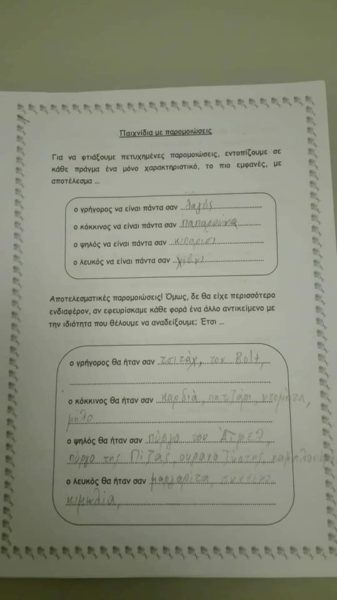 Παιχνίδια με παρομοιώσεις
Για να φτιάξουμε πετυχημένες παρομοιώσεις, εντοπίζουμε σε
κάθε πράγμα ένα μόνο χαρακτηριστικό, το πιο εμφανές, με
αποτέλεσμα ...
ο γρήγορος να είναι πάντα σαν λαγός
ο κόκκινος να είναι πάντα σαν παπαρούνα
ο ψηλός να είναι πάντα σαν κυπαρίσι
ο λευκός να είναι πάντα σαν χιόνι
Αποτελεσματικές παρομοιώσεις! Όμως, δε θα είχε περισσότερο
ενδιαφέρον, αν εφευρίσκαμε κάθε φορά ένα άλλο αντικείμενο με
την ιδιότητα που θέλουμε να αναδείξουμε; Έτσι ...
ο γρήγορος θα ήταν σαν τσιτάχ, τον Bolt,
ο κόκκινος θα ήταν σαν καρδιά, παντζάρι,
μήλο
ο ψηλός θα ήταν σαν πύργο του
πύργο της Πίζας, ουρανοξύστης,
ο λευκός θα ήταν σαν μαργαρίτα,
κιμωλία,